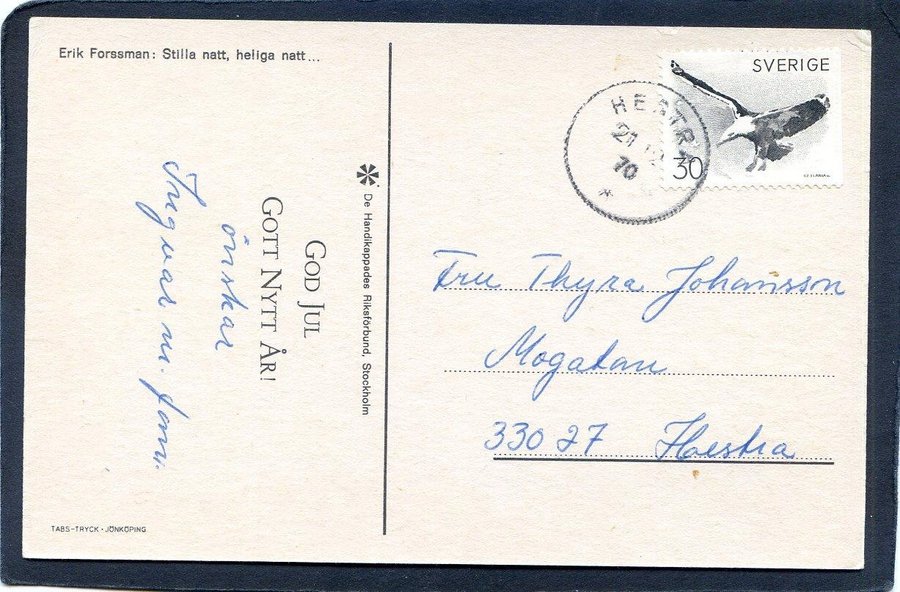 Erik Forssman: Stilla natt, heliga natt...
SVERIGE
30
HESTRA
21 12
70
*
De Handikappades Riksförbund, Stockholm
GOD JUL
GOTT NYTT ÅR!
önskar
Ingvar m. fam.
Fru Thyra Johansson
Mogatan
330 27 Hestra
TABS-TRYCK · JÖNKÖPING